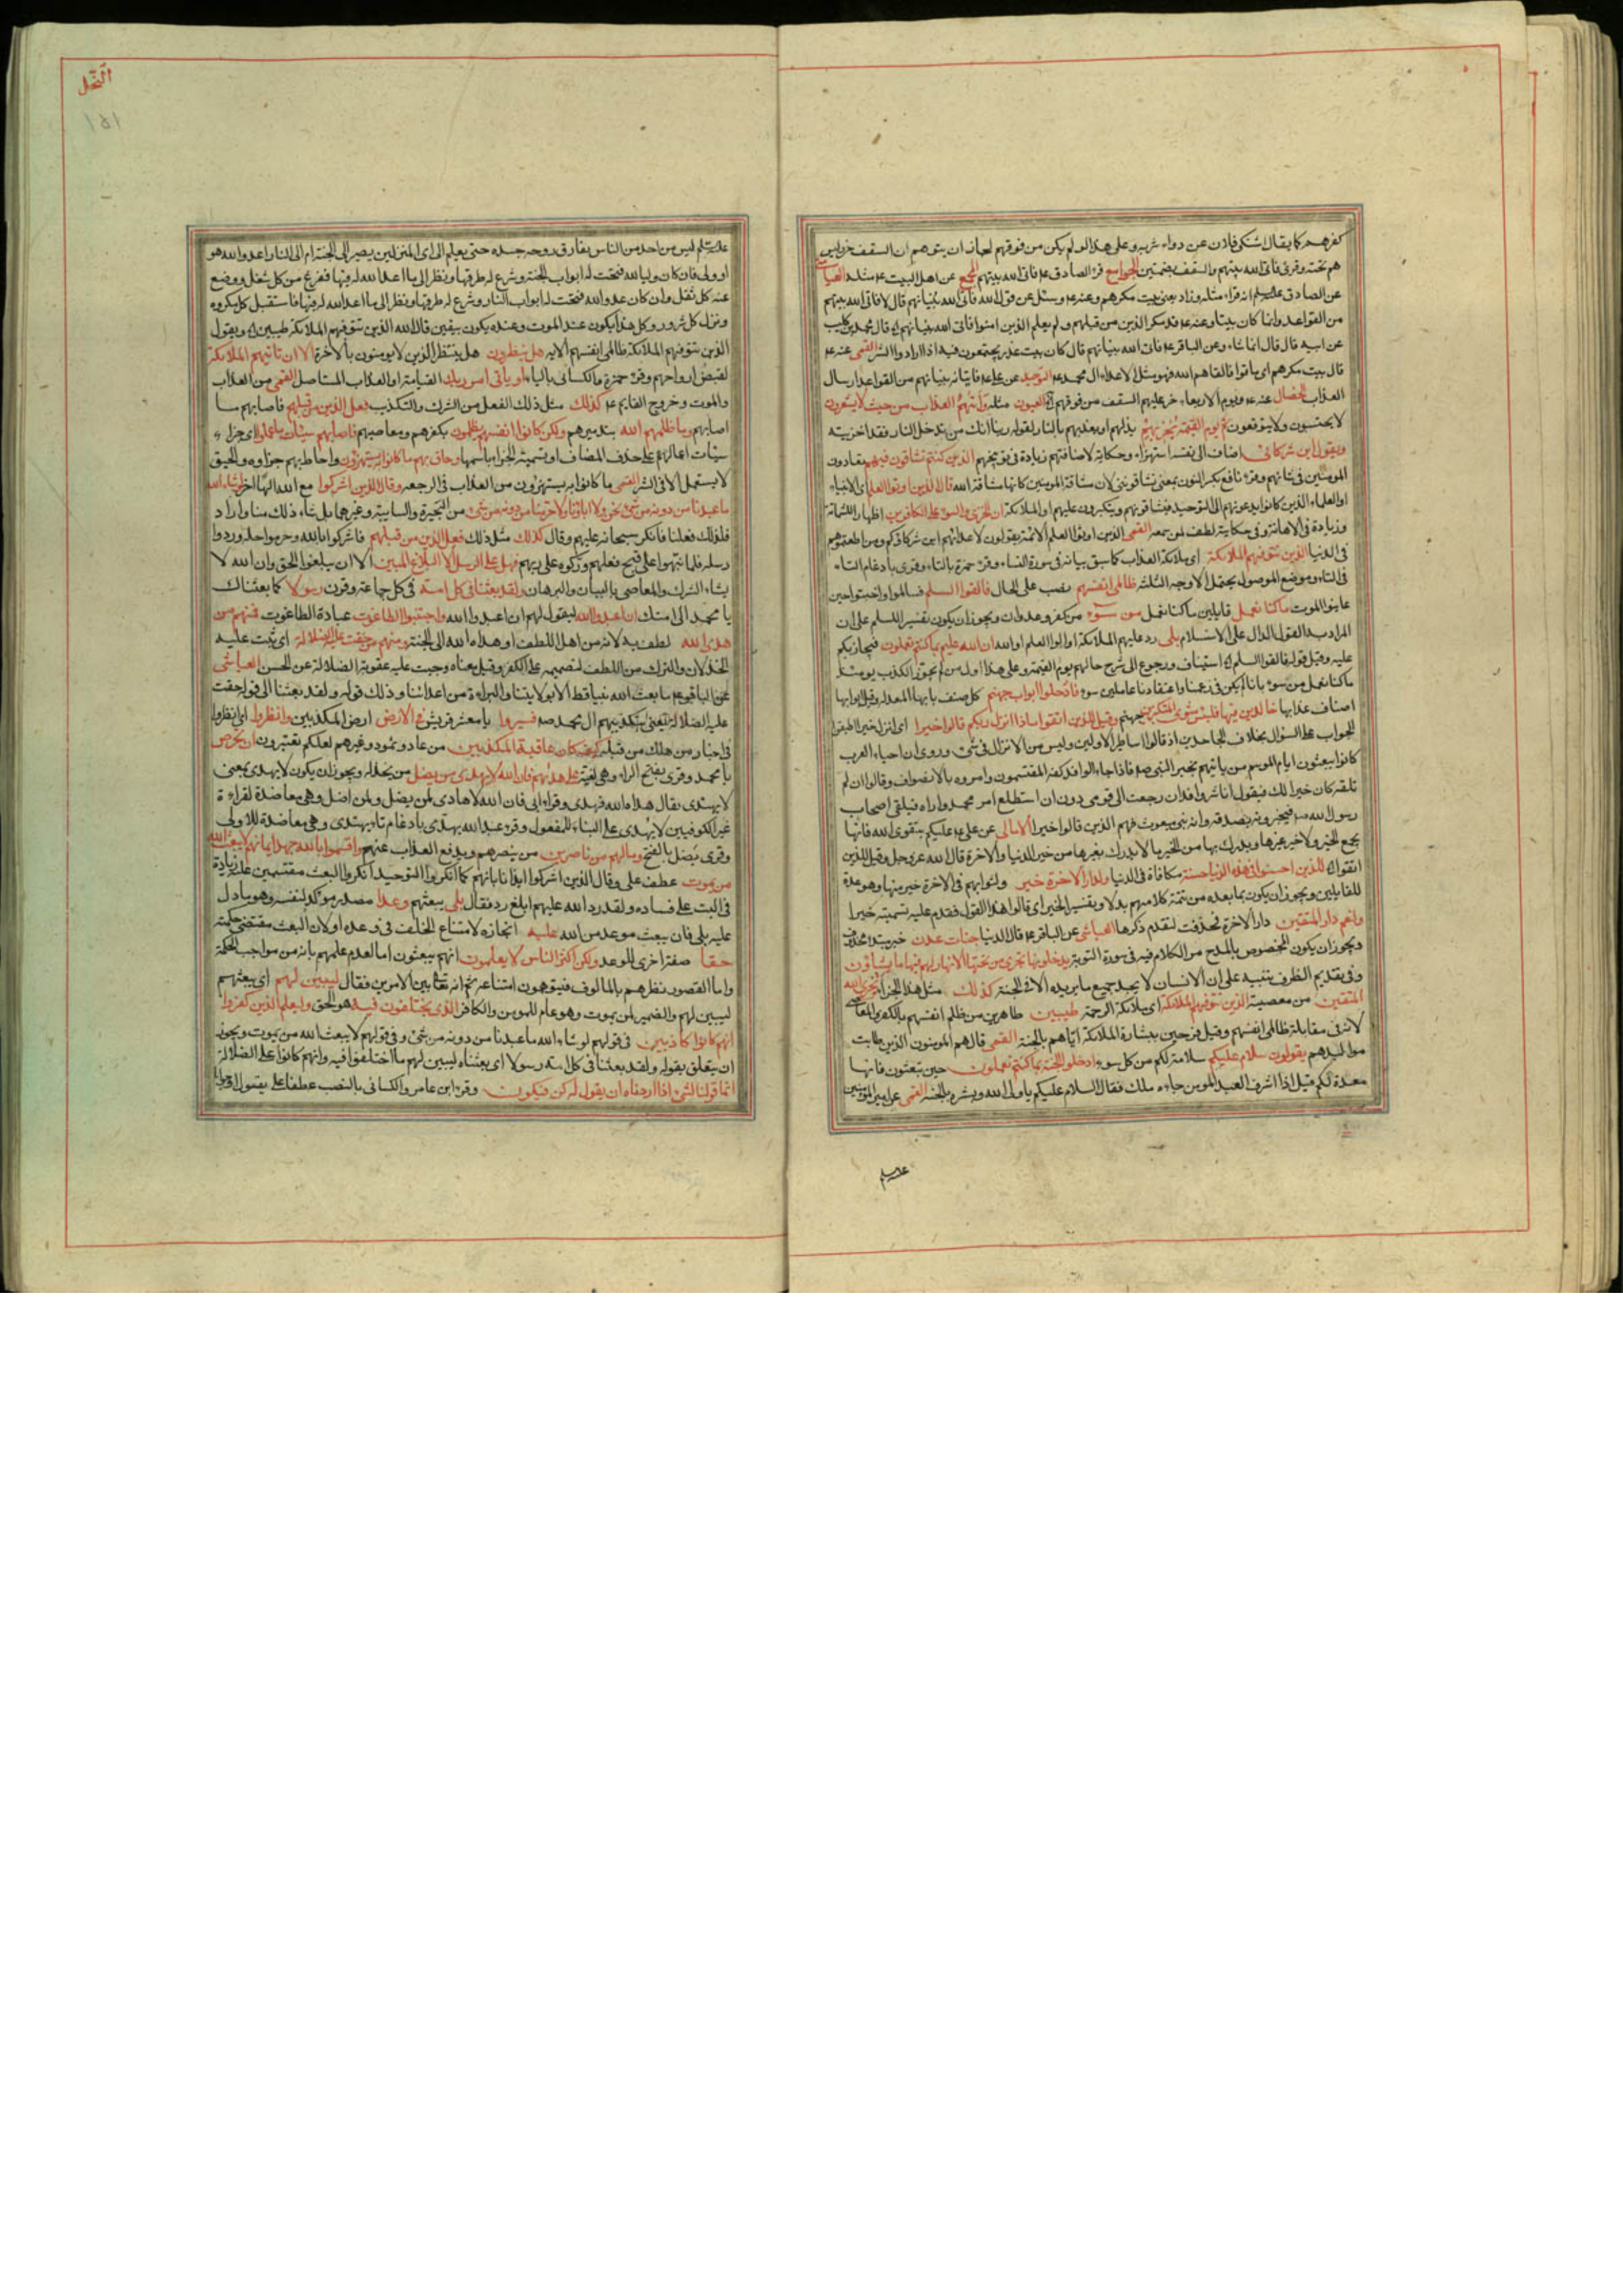 كفرهم كما يقال اشتكى فلان عن دواء شربه وعلى هذا لو لم يكن من فوقهم لجاز ان يتوهم ان السقف خر وليس
هم تحته وقرئ فاتى الله بيتهم والسقف بضمتين الجوامع قرء الصادق ع فاتى الله بيتهم المجمع عن اهل البيت ع مثله العياشى
عن الصادق عليه السلم انه قراء مثله وزاد يعنى بيت مكرهم وعنه ع وسئل عن قول الله فاتى الله بنيانهم قال لا فاتى الله بيتهم
من القواعد وانما كان بيتا وعنه ع قد مكر الذين من قبلهم ولم يعلم الذين امنوا فاتى الله بنيانهم قال محمد بن كليب
عن ابيه قال قال انما شاء وعن الباقر ع فاتى الله بنيانهم قال كان بيت غدر يجتمعون فيه اذا ارادوا الشر القمى عنه ع
قال بيت مكرهم اى ماتوا فالقاهم الله فهو مثل لاعداء ال محمد ع التوحيد عن على ع فاتيانه بنيانهم من القواعد ارسال
العذاب الخصال عنه ع ويوم الاربعاء خر عليهم السقف من فوقهم العيون مثله واتيهم العذاب من حيث لا يشعرون
لا يحتسبون ولا يتوقعون ثم يوم القيمة يخزيهم يذلهم او يعذبهم بالنار لقوله ربنا انك من تدخل النار فقد اخزيته
ويقول اين شركائى اضاف الى نفسه استهزاء وحكاية لاضافتهم زيادة فى توبيخهم الذين كنتم تشاقون فيهم تعادون
المومنين فى شانهم وقرء نافع بكسر النون بمعنى تشاقوننى لان مشاقة المومنين كانها مشاقة الله قال الذين اوتوا العلم اى الانبياء
او العلماء الذين كانوا يدعونهم الى التوحيد فيشاقونهم ويتكبرون عليهم او الملائكة ان الخزى والسوء على الكافرين اظهارا للشماتة
وزيادة فى الاهانة وفى حكايته لطف لمن سمعه القمى الذين اوتوا العلم الائمة يقولون لاعدائهم اين شركاؤكم ومن اطعتموهم
فى الدنيا الذين تتوفيهم الملائكة اى ملائكة العذاب كما سبق بيانه فى سورة النساء وقرء حمزة بالتاء وقرئ بادغام التاء
فى التاء وموضع الموصول يحتمل الاوجه الثلثة ظالمى انفسهم نصب على الحال فالقوا السلم فسالموا واخبتوا حين
عاينوا الموت ما كنا نعمل قايلين ما كنا نعمل من سوء من كفر وعدوان ويجوز ان يكون تفسير السلم على ان
المراد به القول الدال على الاستسلام بلى رد عليهم الملائكة او اولوا العلم او الله ان الله عليم بما كنتم تعملون فيجازيكم
عليه وقيل قوله فالقوا السلم استيناف ورجوع الى شرح حالهم يوم القيمة وعلى هذا اول من لم يجوز الكذب يومئذ
ما كنا نعمل من سوء بانا لم يكن فى زعمنا واعتقادنا عاملين سوء فادخلوا ابواب جهنم كل صنف بابها المعد له وقيل ابوابها
اصناف عذابها خالدين فيها فلبئس مثوى المتكبرين جهنم وقيل للذين اتقوا ماذا انزل ربكم قالوا خيرا اى انزل خيرا اطبقوا
الجواب على السؤال بخلاف الجاحدين اذ قالوا اساطير الاولين وليس من الانزال فى شئ وروى ان احياء العرب
كانوا يبعثون ايام الموسم من ياتيهم بخبر النبى ص فاذا جاء الوافد كفه المقتسمون وامروه بالانصراف وقالوا ان لم
تلقه كان خيرا لك فيقول انا شر وافد ان رجعت الى قومى دون ان استطلع امر محمد واراه فيلقى اصحاب
رسول الله ص فيخبرونه بصدقه وانه نبى مبعوث فهم الذين قالوا خيرا الامالى عن على ع عليكم بتقوى الله فانها
تجمع الخير ولا خير غيرها ويدرك بها من الخير ما لا يدرك بغيرها من خير الدنيا والاخرة قال الله عز وجل وقيل للذين
اتقوا للذين احسنوا فى هذه الدنيا حسنة مكافاة فى الدنيا ولدار الاخرة خير ولثوابهم فى الاخرة خير منها وهو عدة
للقايلين ويجوز ان يكون بما بعده من تتمة كلامهم بدلا وتفسير الخير اى قالوا هذا القول فقدم عليه تسميته خيرا
ولنعم دار المتقين دار الاخرة فحذفت لتقدم ذكرها العياشى عن الباقر ع قال الدنيا جنات عدن خبر مبتدء محذوف
ويجوز ان يكون المخصوص بالمدح مر الكلام فيه فى سورة التوبة يدخلونها تجرى من تحتها الانهار لهم فيها ما يشاؤن
وفى تقديم الظرف تنبيه على ان الانسان لا يجد جميع ما يريده الا فى الجنة كذلك مثل هذا الجزاء يجزى الله
المتقين من معصيته الذين تتوفيهم الملائكة اى ملائكة الرحمة طيبين طاهرين من ظلم انفسهم بالكفر والمعاصى
لانه فى مقابلة ظالمى انفسهم وقيل فرحين ببشارة الملائكة اياهم بالجنة القمى قال هم المومنون الذين طابت
مواليدهم يقولون سلام عليكم سلامة لكم من كل سوء ادخلوا الجنة بما كنتم تعملون حين تبعثون فانها
معدة لكم قيل اذا اشرف العبد المومن جاءه ملك فقال السلام عليكم يا ولى الله وبشره بالجنة القمى عن امير المومنين
عليه السلم
النحل
١٥١
عليه السلم ليس من احد من الناس يفارق روحه جسده حتى يعلم الى اى المنزلين يصير الى الجنة ام الى النار اعدو الله هو
او ولى فان كان وليا لله فتحت له ابواب الجنة وشرع له طرقها ونظر الى ما اعد الله له فيها ففرغ من كل شغل ووضع
عنه كل ثقل وان كان عدو الله فتحت له ابواب النار وشرع له طرقها ونظر الى ما اعد الله له فيها فاستقبل كل مكروه
ونزل كل شرور وكل هذا يكون عند الموت وعنده يكون بيقين قال الله الذين تتوفيهم الملائكة طيبين ويقول
الذين تتوفيهم الملائكة ظالمى انفسهم الايه هل ينظرون هل ينتظر الذين لا يومنون بالاخرة الا ان تاتيهم الملائكة
لقبض ارواحهم وقرء حمزة والكسائى بالياء او ياتى امر ربك القيامة او العذاب المستاصل القمى من العذاب
والموت وخروج القايم ع كذلك مثل ذلك الفعل من الشرك والتكذيب فعل الذين من قبلهم فاصابهم ما
اصابهم وما ظلمهم الله بتدميرهم ولكن كانوا انفسهم يظلمون بكفرهم ومعاصيهم فاصابهم سيئات ما عملوا اى جزاء
سيئات اعمالهم على حذف المضاف او تسمية الجزاء باسمها وحاق بهم ما كانوا به يستهزؤن واحاط بهم جزاوه والحيق
لا يستعمل الا فى الشر القمى ما كانوا به يستهزؤن من العذاب فى الرجعه وقال الذين اشركوا مع الله الها اخر لو شاء الله
ما عبدنا من دونه من شئ نحن ولا اباؤنا ولا حرمنا من دونه من شئ من البحيرة والسايبة وغيرهما بل شاء ذلك منا واراد
فلذلك فعلنا فانكر سبحانه عليهم وقال كذلك مثل ذلك فعل الذين من قبلهم فاشركوا بالله وحرموا حله وردوا
رسله فلما نبهوا على قبح فعلهم وركوه على ربهم فهل على الرسل الا البلاغ المبين الا ان يبلغوا الحق وان الله لا
يشاء الشرك والمعاصى بالبيان والبرهان ولقد بعثنا فى كل امة فى كل جماعة وقرن رسولا كما بعثناك
يا محمد الى امتك ان اعبدوا الله ليقول لهم ان اعبدوا الله واجتنبوا الطاغوت عبادة الطاغوت فمنهم من
هدى الله لطف به لانه من اهل اللطف او هداه الله الى الجنة ومنهم من حقت عليه الضلالة اى ثبت عليه
الخذلان والترك من اللطف لتصميمه على الكفر وقيل معناه وجبت عليه عقوبة الضلالة عن الحسن العياشى
عن الباقر ع ما بعث الله نبيا قط الا بولايتنا والبراءة من اعدائنا وذلك قوله ولقد بعثنا الى قوله حقت
عليه الضلالة يعنى بتكذيبهم ال محمد ص فسيروا يا معشر قريش فى الارض ارض المكذبين وانظروا اى انظروا
فى اخبار من هلك من قبلكم كيف كان عاقبة المكذبين من عاد وثمود وغيرهم لعلكم تعتبرون ان تحرص
يا محمد وقرئ بفتح الراء وهى لغية على هديهم فان الله لا يهدى من يضل من يخذله ويجوز ان يكون لا يهدى بمعنى
لا يهتدى يقال هداه الله فهدى وقراء ابى فان الله لا هادى لمن يضل ولمن اضل وهى معاضدة لقراءة
غير الكوفيين لا يُهدى على البناء للمفعول وقرء عبد الله يهدّى بادغام تاء يهتدى وهى معاضدة للاولى
وقرئ يَضل بالفتح وما لهم من ناصرين من ينصرهم ويدفع العذاب عنهم واقسموا بالله جهد ايمانهم لا يبعث الله
من يموت عطف على وقال الذين اشركوا ايذانا بانهم كما انكروا التوحيد انكروا البعث مقتسمين عليه زيادة
فى البت على فساده ولقد رد الله عليهم ابلغ رد فقال بلى يبعثهم وعدا مصدر موكد لنفسه وهو ما دل
عليه بلى فان يبعث موعد من الله عليه انجازه لامتناع الخلف فى وعده او لان البعث مقتضى حكمته
حقا صفة اخرى للوعد ولكن اكثر الناس لا يعلمون انهم يبعثون اما لعدم علمهم بانه من مواجب الحكمة
واما لقصور نظرهم بالمالوف فيتوهمون امتناعه ثم انه تعالى بين الامرين فقال ليبين لهم اى يبعثهم
ليبين لهم والضمير لمن يموت وهو عام للمومن والكافر الذى يختلفون فيه هو الحق وليعلم الذين كفروا
انهم كانوا كاذبين فى قولهم لو شاء الله ما عبدنا من دونه من شئ وفى قولهم لا يبعث الله من يموت ويجوز
ان يتعلق بقوله ولقد بعثنا فى كل امة رسولا اى بعثناه ليبين لهم ما اختلفوا فيه وانهم كانوا على الضلالة
انما قولنا لشئ اذا اردناه ان يقول له كن فيكون وقرء ابن عامر والكسائى بالنصب عطفا على يقول